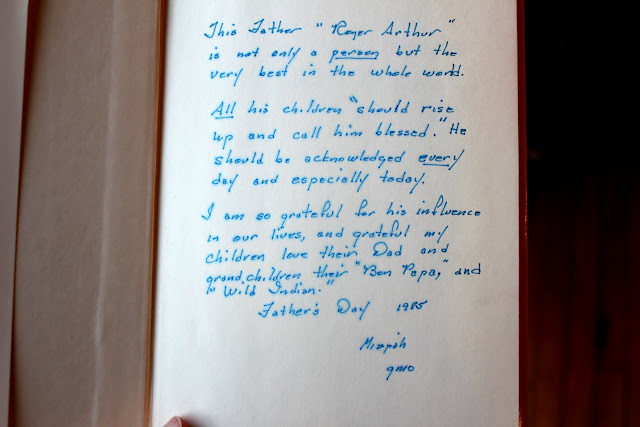 This Father "Roger Arthur"
is not only a person but the
very best in the whole world.
All his children "should rise
up and call him blessed." He
should be acknowledged every
day and especially today.
I am so grateful for his influence
in our lives, and grateful my
children love their Dad and
grandchildren their "Bon Papa," and
"Wild Indian."
Father's Day 1985
Mizpah
gmo